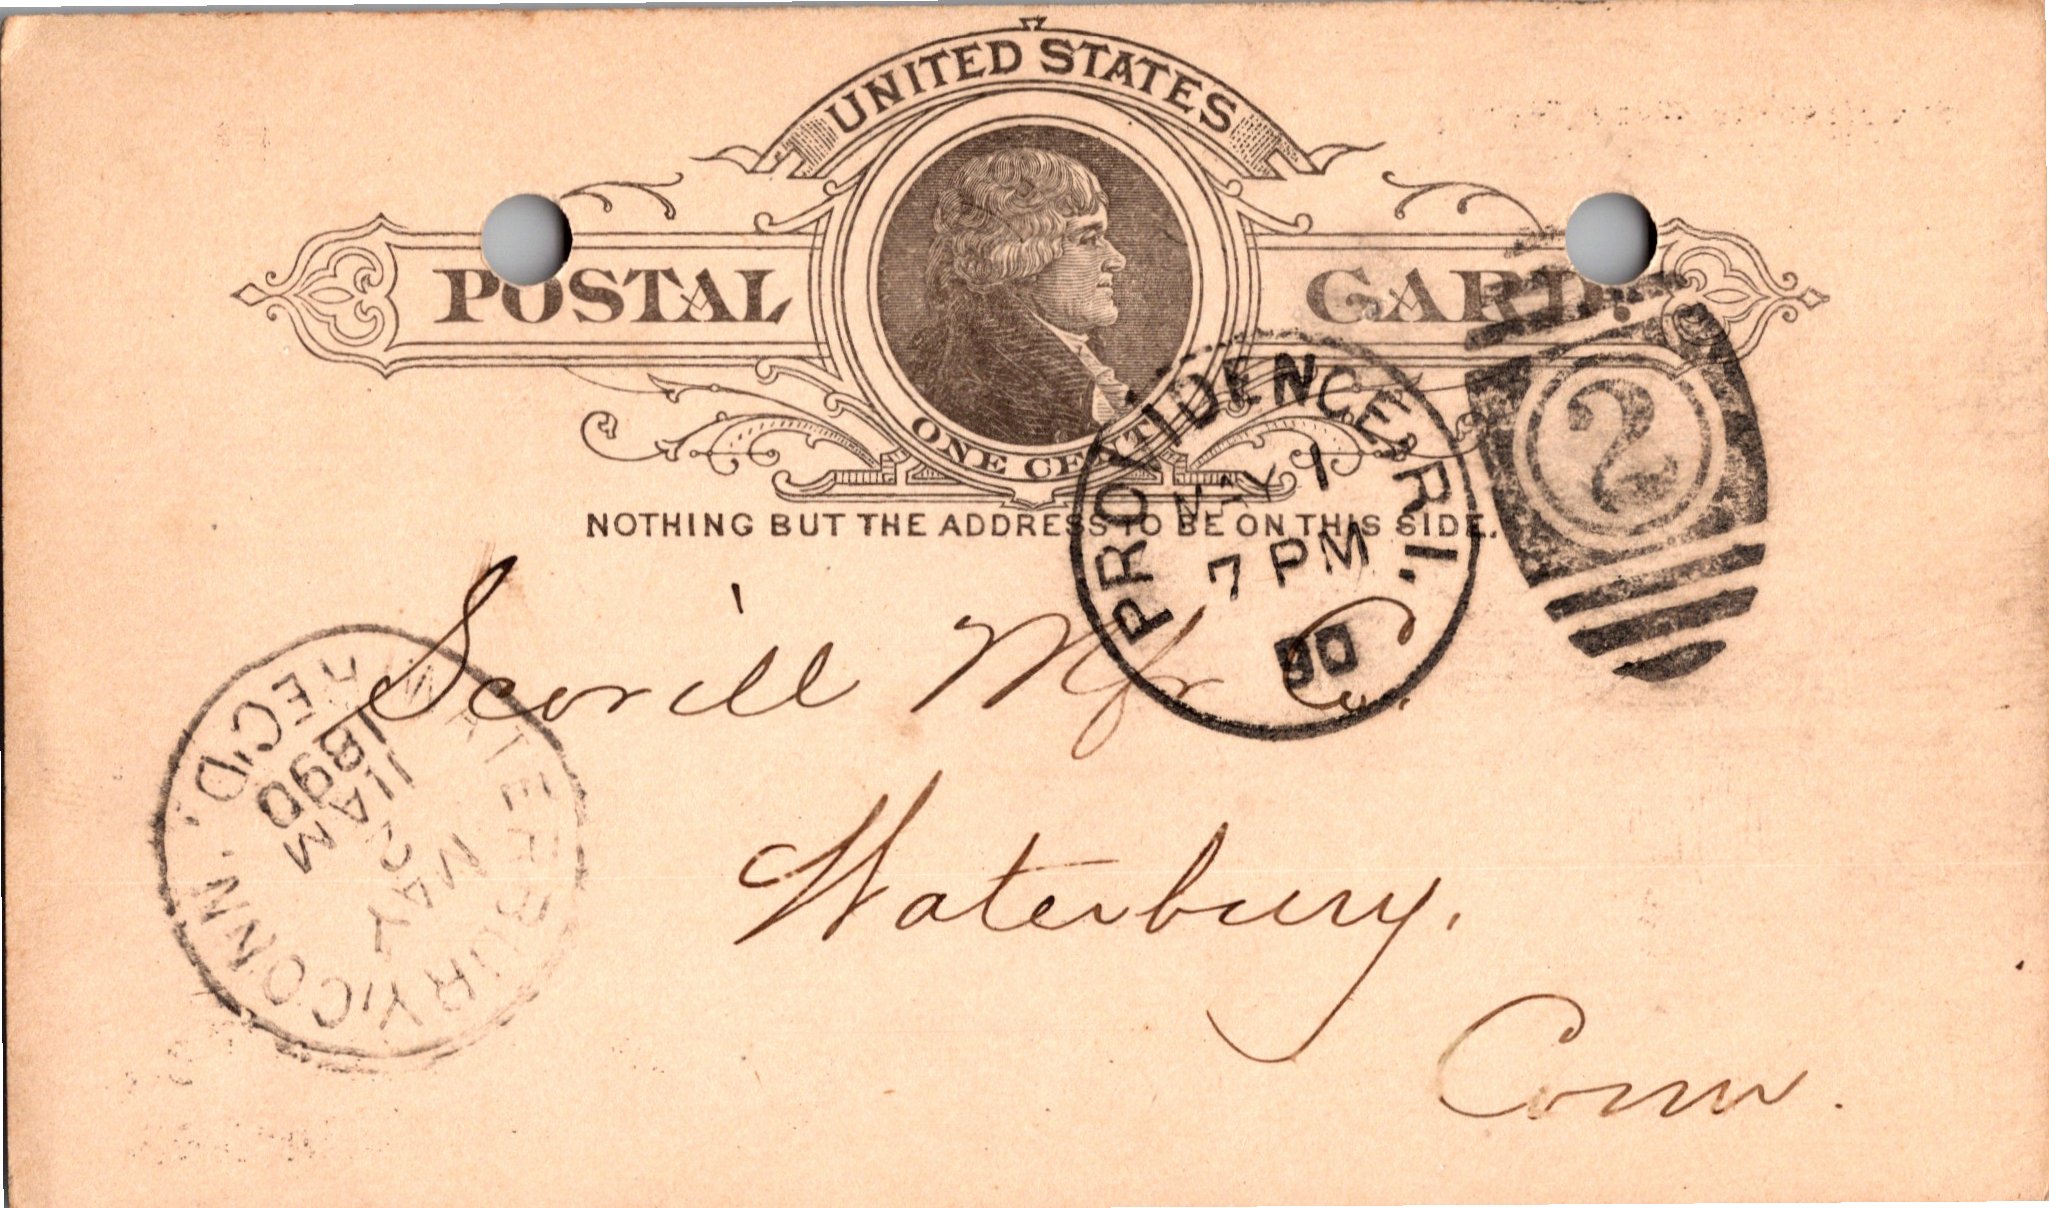 UNITED STATES
POSTAL CARD.
ONE CENT
NOTHING BUT THE ADDRESS TO BE ON THIS SIDE.
PROVIDENCE, R.I.
MAY 1
7 PM
90
2
Scovill Mfr Co.
Waterbury,
Conn.
WATERBURY, CONN.
MAY
2
11 AM
1890
REC'D.